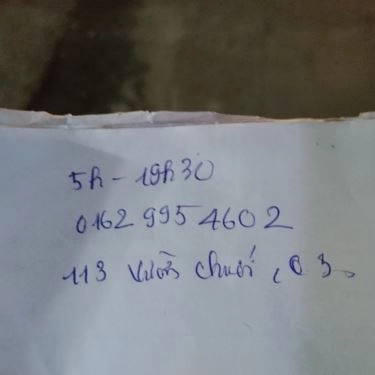 5h - 19h30
0162 995 4602
113 Vườn Chuối, Q 3.